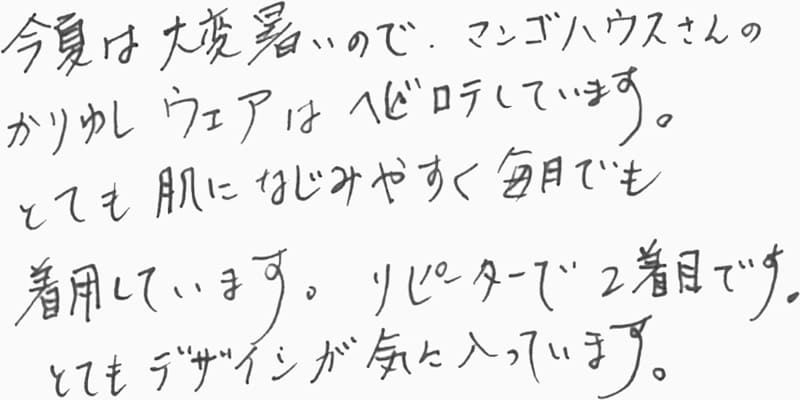 今夏は大変暑いので、マンゴハウスさんの
かりゆしウェアはヘビロテしています。
とても肌になじみやすく毎月でも
着用しています。リピーターで2着目です。
とてもデザインが気に入っています。